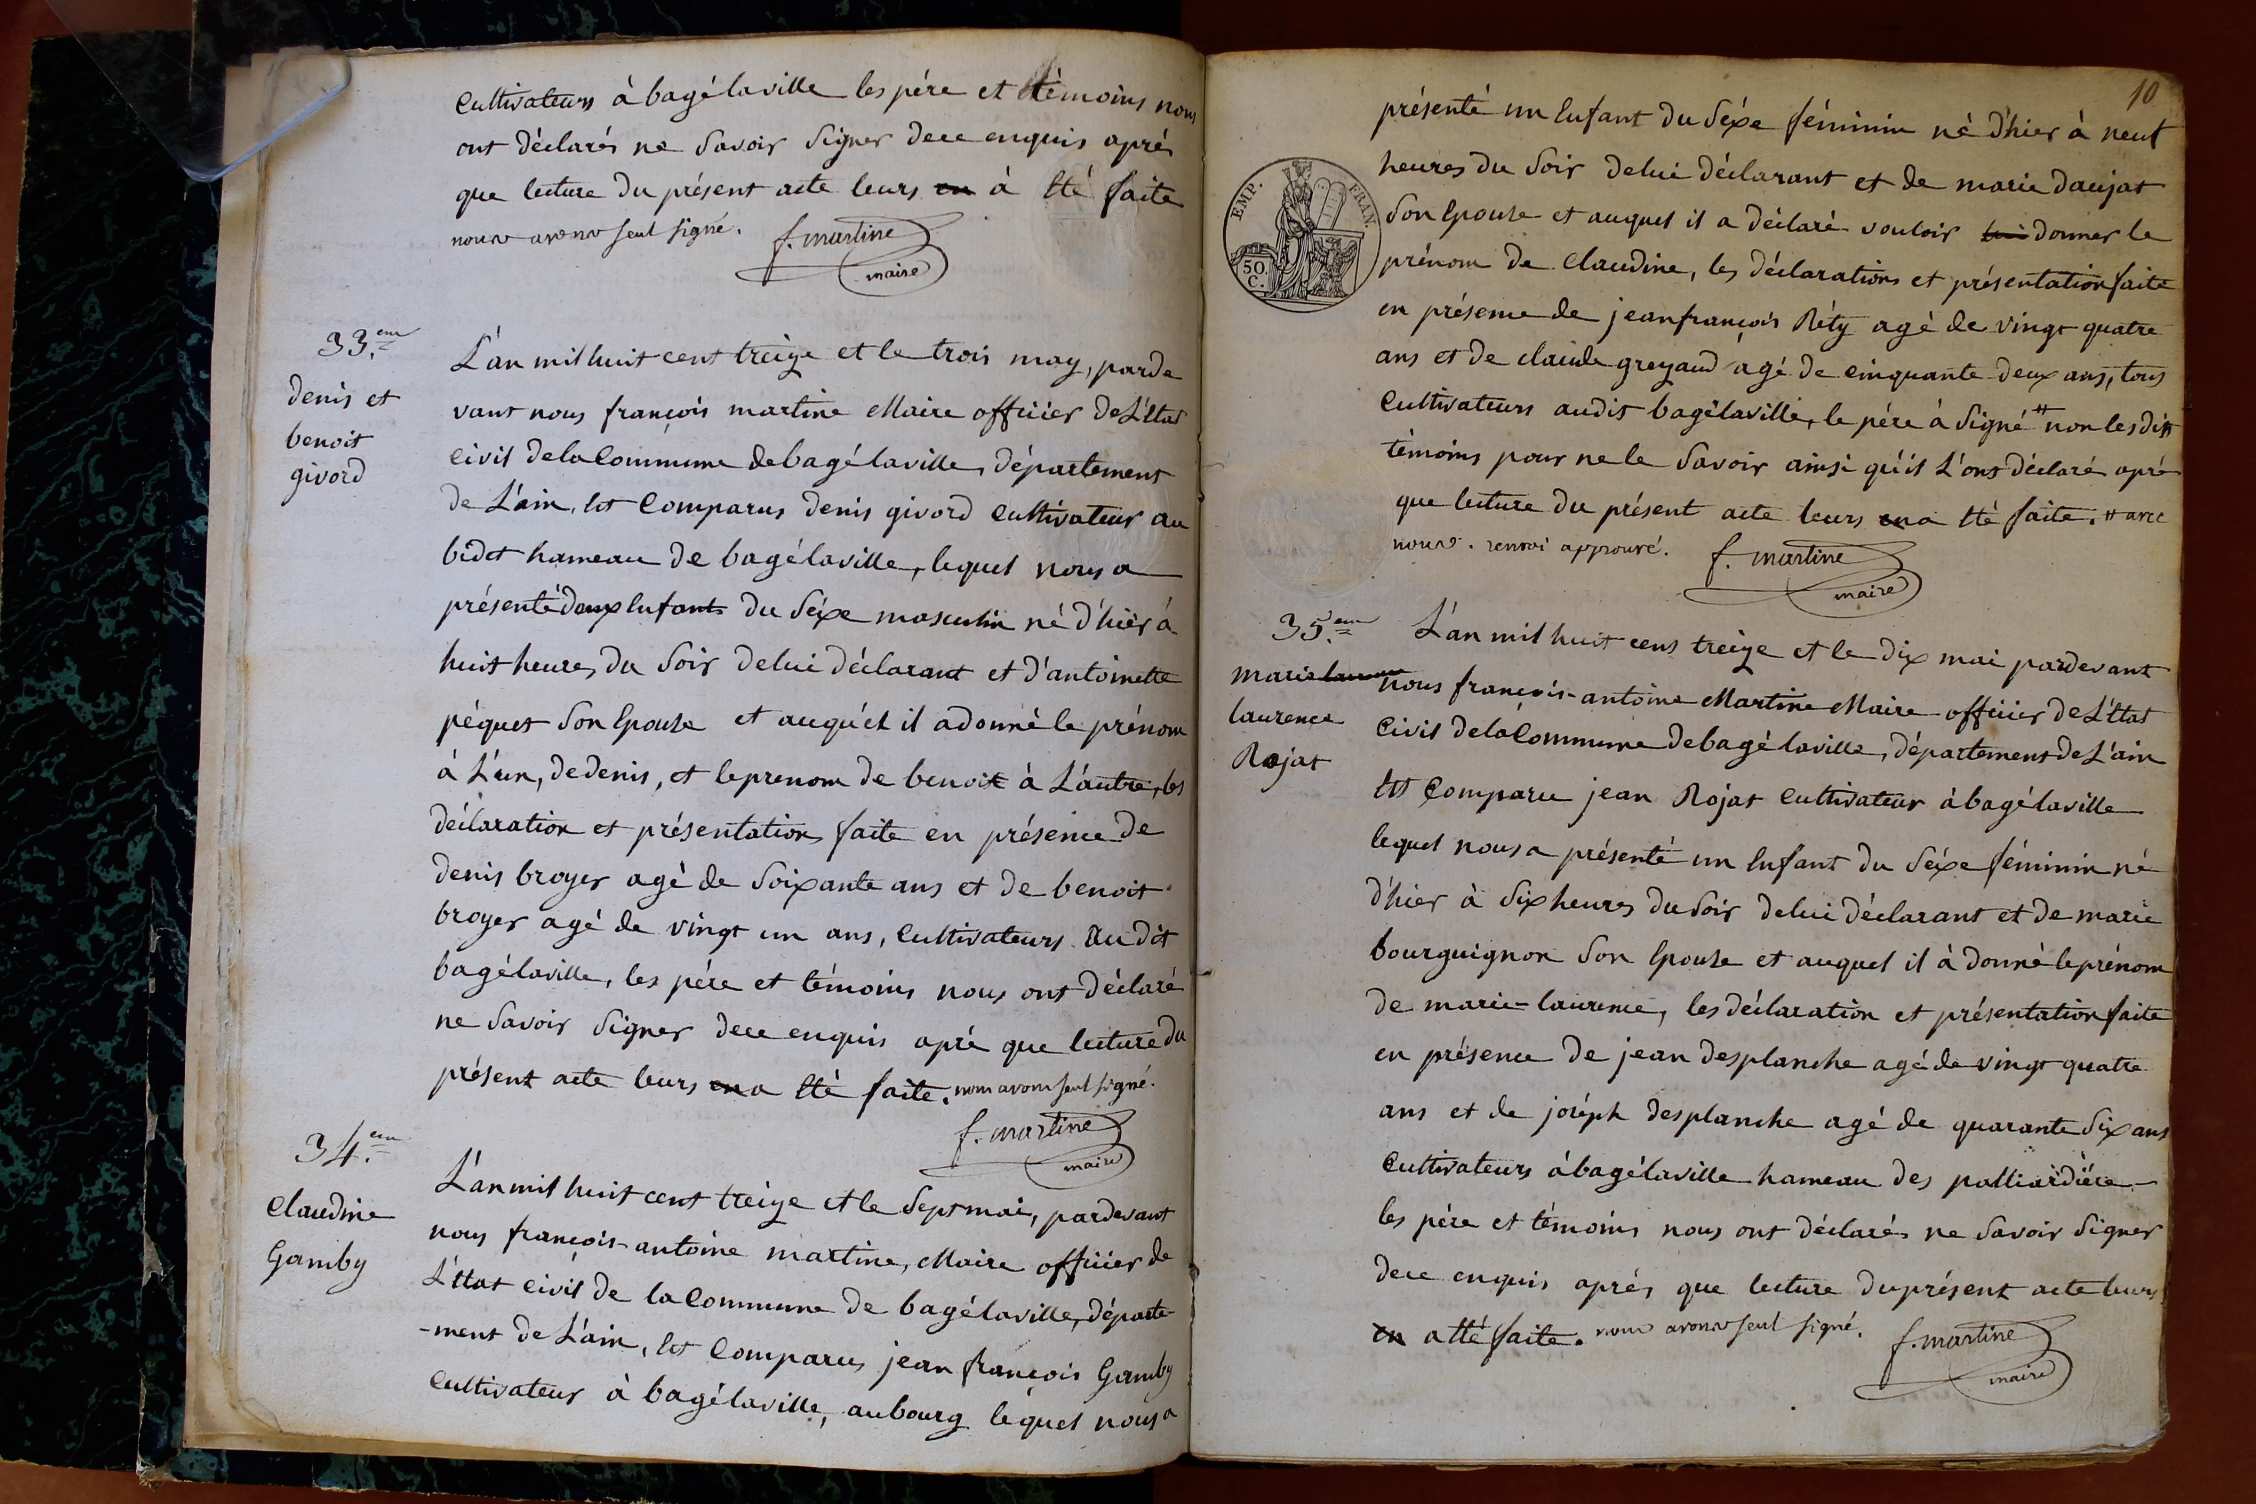 cultivateurs à bagélaville les pére et témoins nous
ont déclarés ne Savoir Signer dece enquis aprés
que lecture du présent acte leurs en à été faite
nous avons seul signé. f. martine
maire
33.em
denis et
benoit
givord
L'an mil huit cent treize et le trois may, parde
vant nous françois martine Maire officier de L'état
civil de la Commune de bagélaville, département
de L'ain, est Comparus denis givord cultivateur au
bidet hameau de bagélaville, lequel nous a
présenté deux Enfants du Séxe masculin né d'hièr à
huit heures du Soir de lui déclarant et d'antoinette
péquet Son Epouse et auquél il a donné le prénom
à L'un, de denis, et le prenom de benoit à L'autre, les
déclaration et présentation faite en présence de
denis broyer agé de Soixante ans et de benoit
broyer agé de vingt un ans, cultivateurs au dit
bagélaville, les pére et témoins nous ont déclaré
ne Savoir Signer dece enquis apré que lecture du
présent acte leurs en a été faite. nous avons seul signé.
f. martine
maire
34.em
Claudine
Gamby
L'an mil huit cent treize et le Sept mai, pardevant
nous françois-antoine martine, Maire officier de
L'état civil de la Commune de bagélaville, départe-
-ment de L'ain, est Comparus jean françois Gamby
cultivateur à bagélaville, au bourg lequel nous a
10
présenté un Enfant du Séxe féminin né d'hier à neuf
heures du Soir de lui déclarant et de marie daujat
Son Epouse et auquel il a déclaré vouloir lui donner le
prénom de Claudine, les déclarations et présentation faite
en présence de jean françois Réty agé de vingt quatre
ans et de claude greyaud agé de cinquante deux ans, tous
Cultivateurs audit bagélaville, le pére à Signé # non les dits
témoins pour ne le Savoir ainsi qu'il L'ont déclaré apré
que lecture du présent acte leurs en a été faite. # avec
nous. renvoi approuvé. f. martine
maire
EMP. FRAN.
50.
C.
35.em
marie
laurence
Rojat
L'an mil huit cens treize et le dix mai pardevant
nous françois-antoine Martine Maire officier de L'état
Civil de la Commune de bagélaville, département de L'ain
est Comparu jean Rojat cultivateur à bagélaville
lequel nous a présenté un Enfant du Séxe féminin né
d'hier à Six heures du Soir de lui déclarant et de marie
bourguignon Son Epouse et auquel il à donné le prénom
de marie-laurence, les déclaration et présentation faite
en présence de jean desplanche agé de vingt quatre
ans et de joséph desplanche agé de quarante Six ans
cultivateurs à bagélaville hameau des palliardière
les pére et témoins nous ont déclarés ne Savoir Signer
dece enquis aprés que lecture du présent acte leurs
en a été faite. nous avons seul signé. f. martine
maire